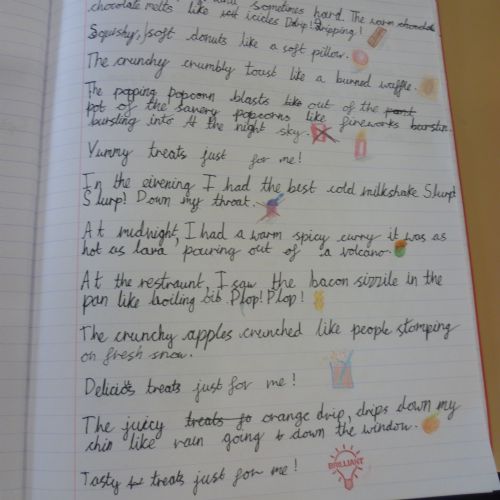 sometimes hard. The warm chocolate
chocolate melts like icicles Drip! Dripping!
Squishy, soft donuts like a soft pillow.
The crunchy crumbly toast like a burned waffle.
The popping popcorn blasts like out of the
pot of the savery popcorns like fireworks burstin
bursting into the night sky.
Yummy treats just for me!
In the eivening I had the best cold milkshake Slurp!
Slurp! Down my throat.
At midnight, I had a warm spicy curry it was as
hot as lava pouring out of a volcano.
At the restraunt, I saw the bacon sizzile in the
pan like boiling Plop! Plop!
The crunchy apples crunched like people stomping
on fresh snow.
Delicios treats just for me!
The juicy treats fo orange drip, drips down my
chin like rain going down the window.
Tasty treats just for me!
BRILLIANT